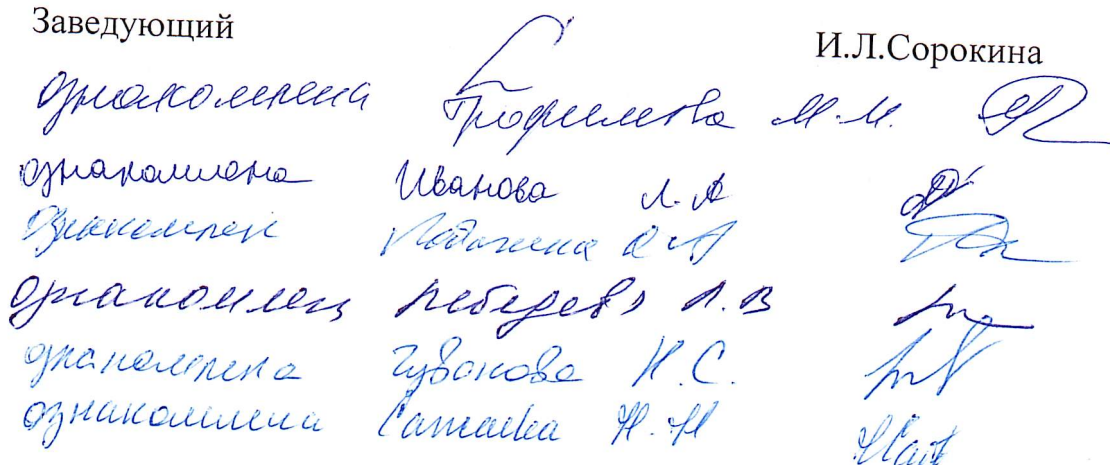 Заведующий И.Л.Сорокина
ознакомлена Трофимова М.М.
ознакомлена Иванова Л.А
ознакомлен
ознакомлен Лебедев А.В
ознакомлена Губанова Н.С.
ознакомлена Н.Н